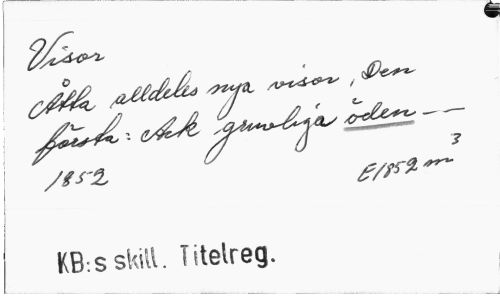 Visor
Åtta alldeles nya visor, Den
första: Ack gruveliga öden --
1852 E1852 m³
KB:s skill. Titelreg.